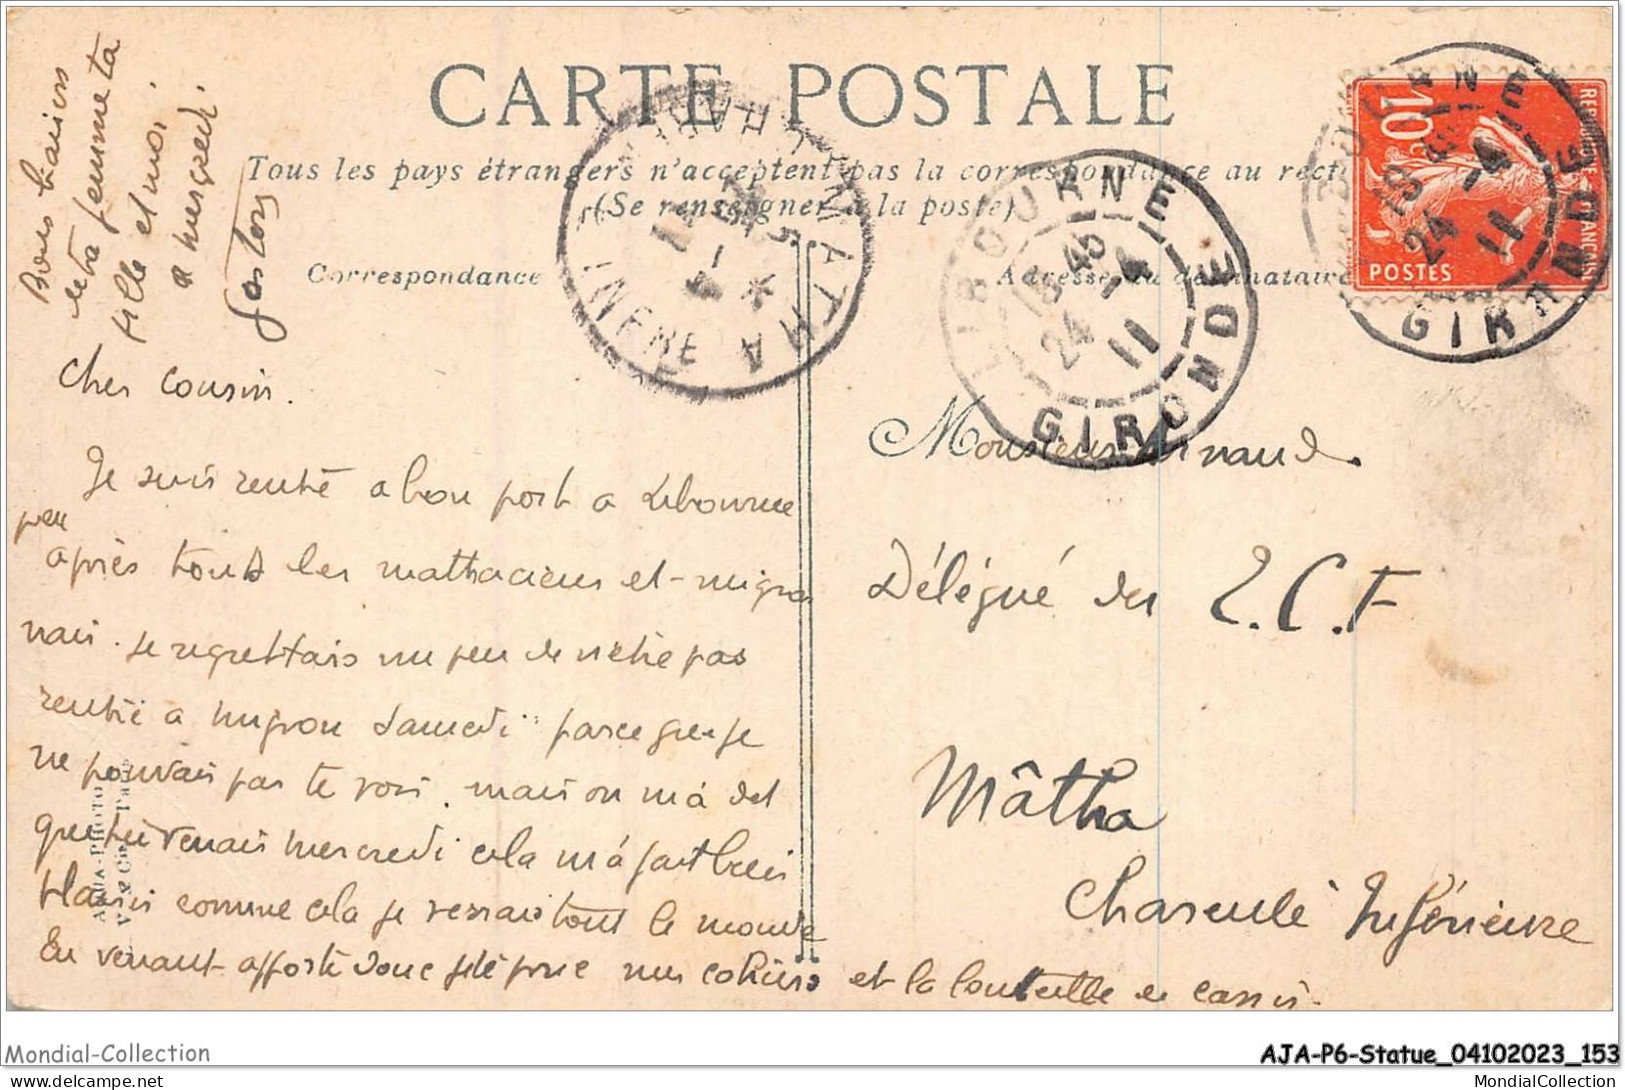 CARTE POSTALE
Tous les pays étrangers n'acceptent pas la correspondance au recto
(Se renseigner à la poste)
Correspondance
Adresse du destinataire
MATHA
CHAR
INFRE
LIBOURNE
GIRONDE
18 45
24 - 4
11
GIRONDE
24 - 4
11
10c
POSTES
Bons baisers
de ta femme ta
fille et moi
a mercredi.
Gaston
Cher Cousin.
Je suis rentré a bon port a Libourne
peu
après tous les mathaciens et migro
nais. Je regrettais un peu de n'être pas
rentré a migron Samedi parce que je
ne pouvais pas te voir. mais on m'a dit
que tu venais mercredi cela m'a fait bien
plaisir comme cela je verrai tout le monde
En venant apporte donc je te prie mes cahiers et la bouteille de cassis.
Monsieur Arnaud
Délégué du T.C.F
Mâtha
Charente Inférieure
AQUA-PHOTO
Mondial-Collection
AJA-P6-Statue_04102023_153
www.delcampe.net
MondialCollection